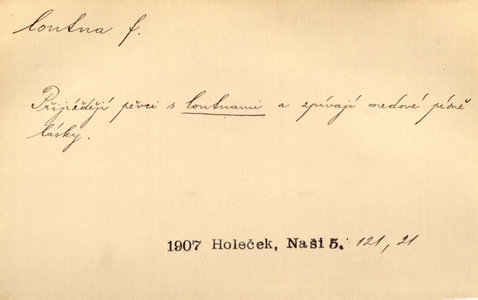 loutna f.
Přijíždějí pěvci s loutnami a zpívají medové písně
lásky.
1907 Holeček, Naši 5. 121, 21